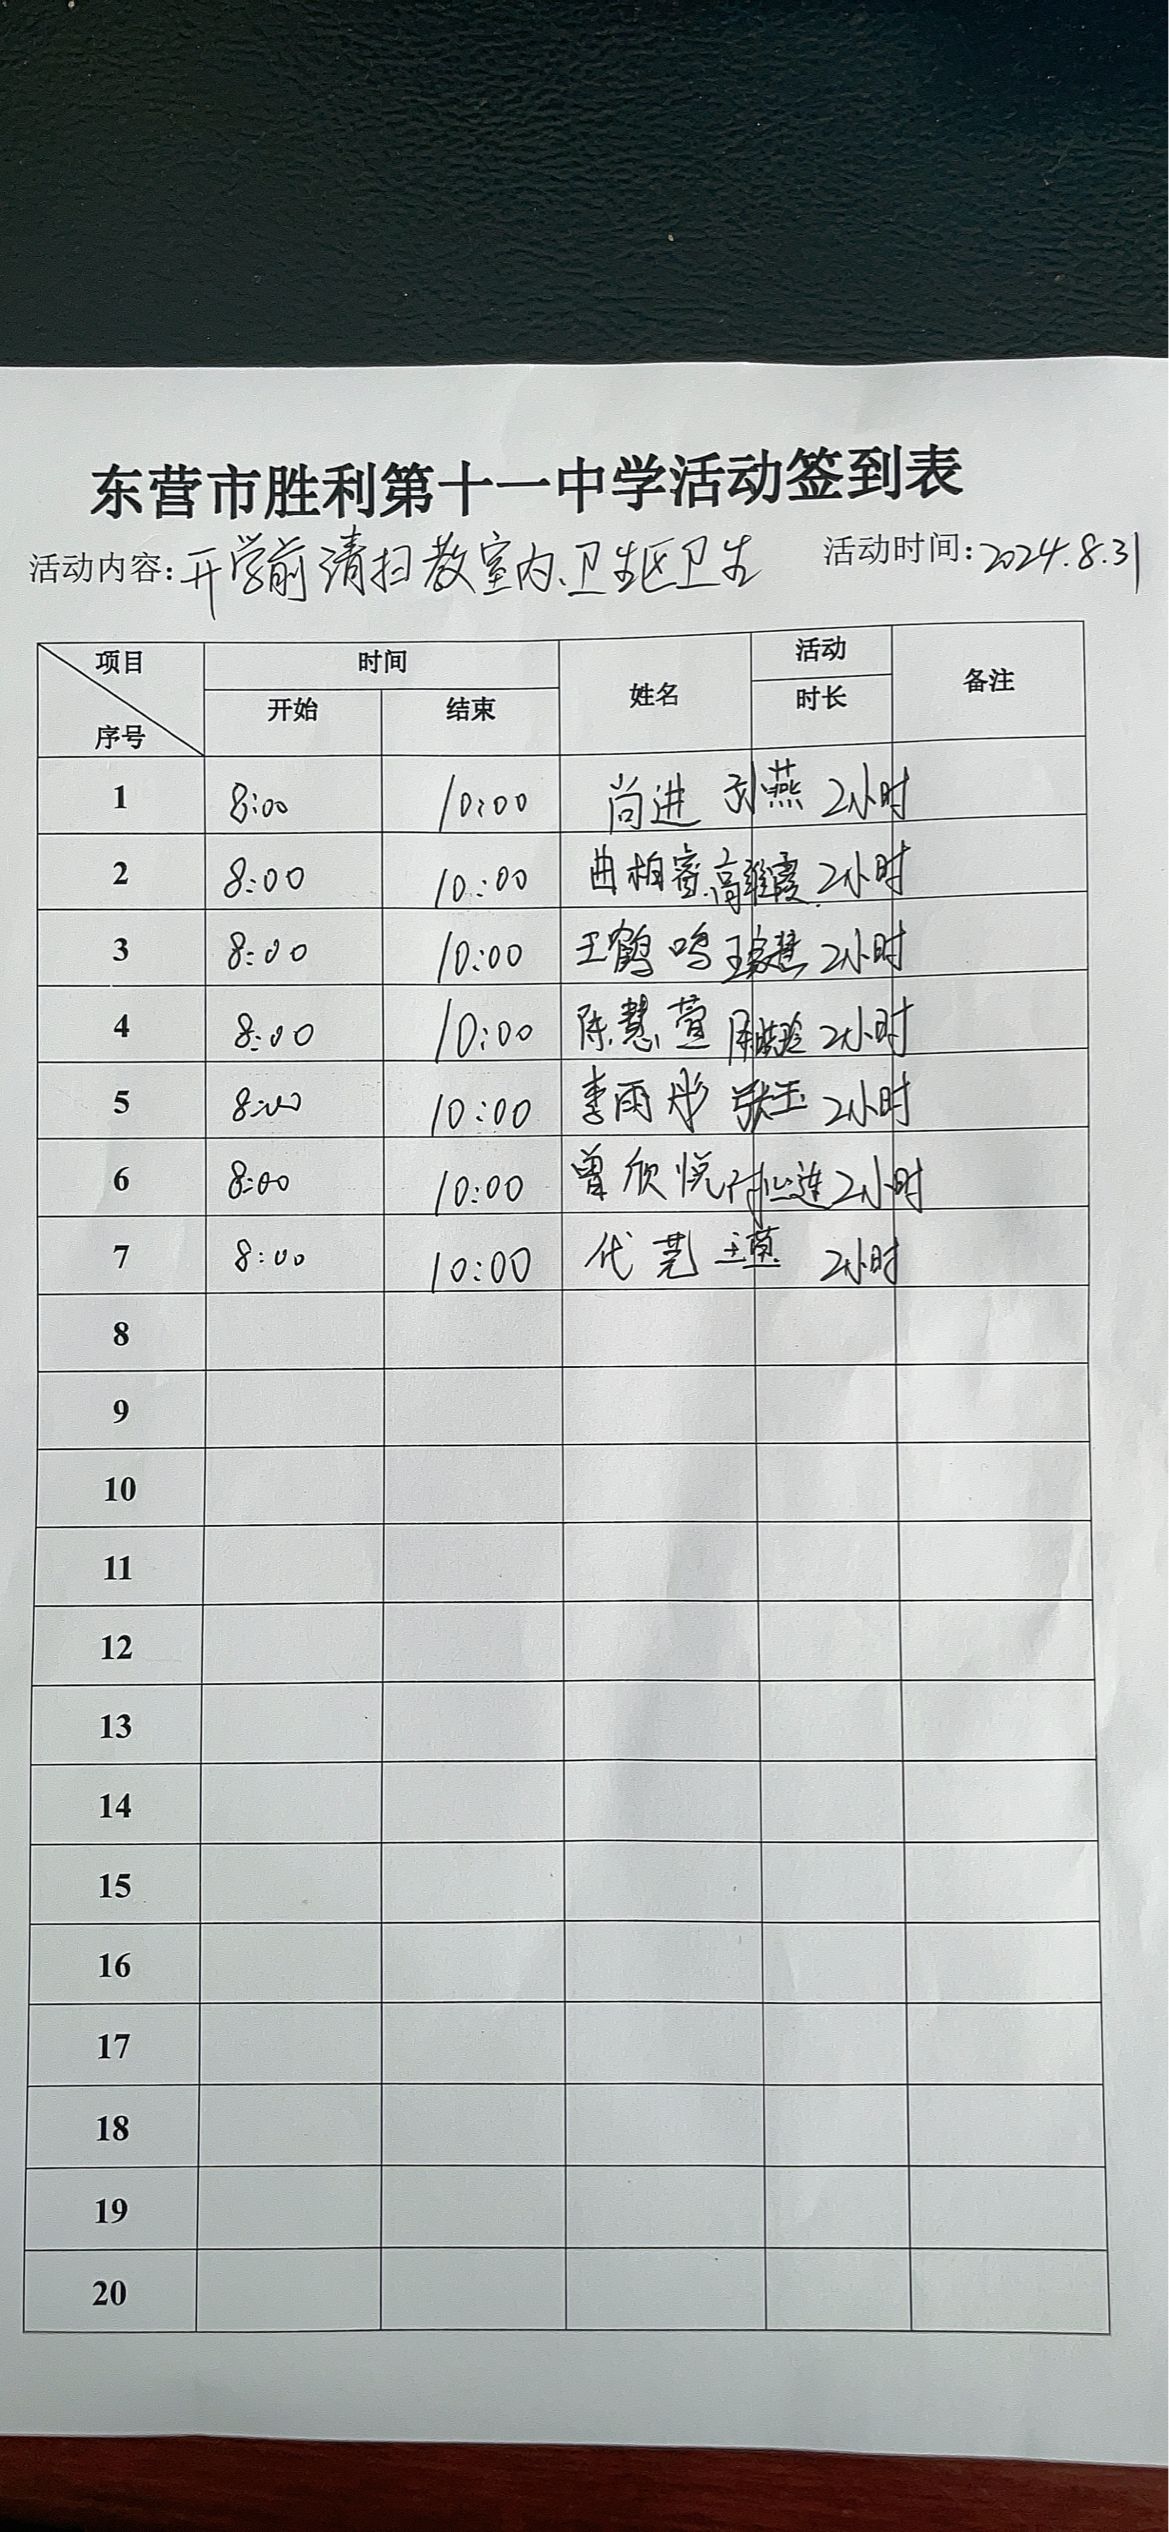 东营市胜利第十一中学活动签到表
活动内容：开学前清扫教室内、卫生区卫生 活动时间：2024.8.31
项目 时间 姓名 活动 备注
序号 开始 结束 时长
1 8:00 10:00 尚进 刘燕 2小时
2 8:00 10:00 曲柏睿 高维霞 2小时
3 8:00 10:00 王鹤鸣 2小时
4 8:00 10:00 陈慧萱 2小时
5 8:00 10:00 李雨彤 张玉 2小时
6 8:00 10:00 曾欣悦 2小时
7 8:00 10:00 代芫 2小时
8
9
10
11
12
13
14
15
16
17
18
19
20